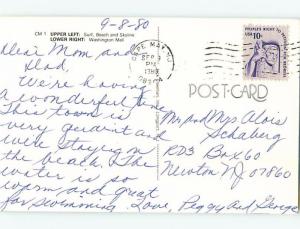 9-8-80
CM 1 UPPER LEFT: Surf, Beach and Skyline
LOWER RIGHT: Washington Mall
Dear Mom and
Dad,
We're having
a wonderful time
This town is
very quaint and
were staying on
the beach. The
water is so
warm and great
for swimming. Love, Peggy and George
CAPE MAY, NJ
SEP 9
PM
1980
PEOPLE'S RIGHT TO
USA 10c
POST CARD
Mr and Mrs Alois
Schaberg
RD3 Box 60
Newton NJ 07860